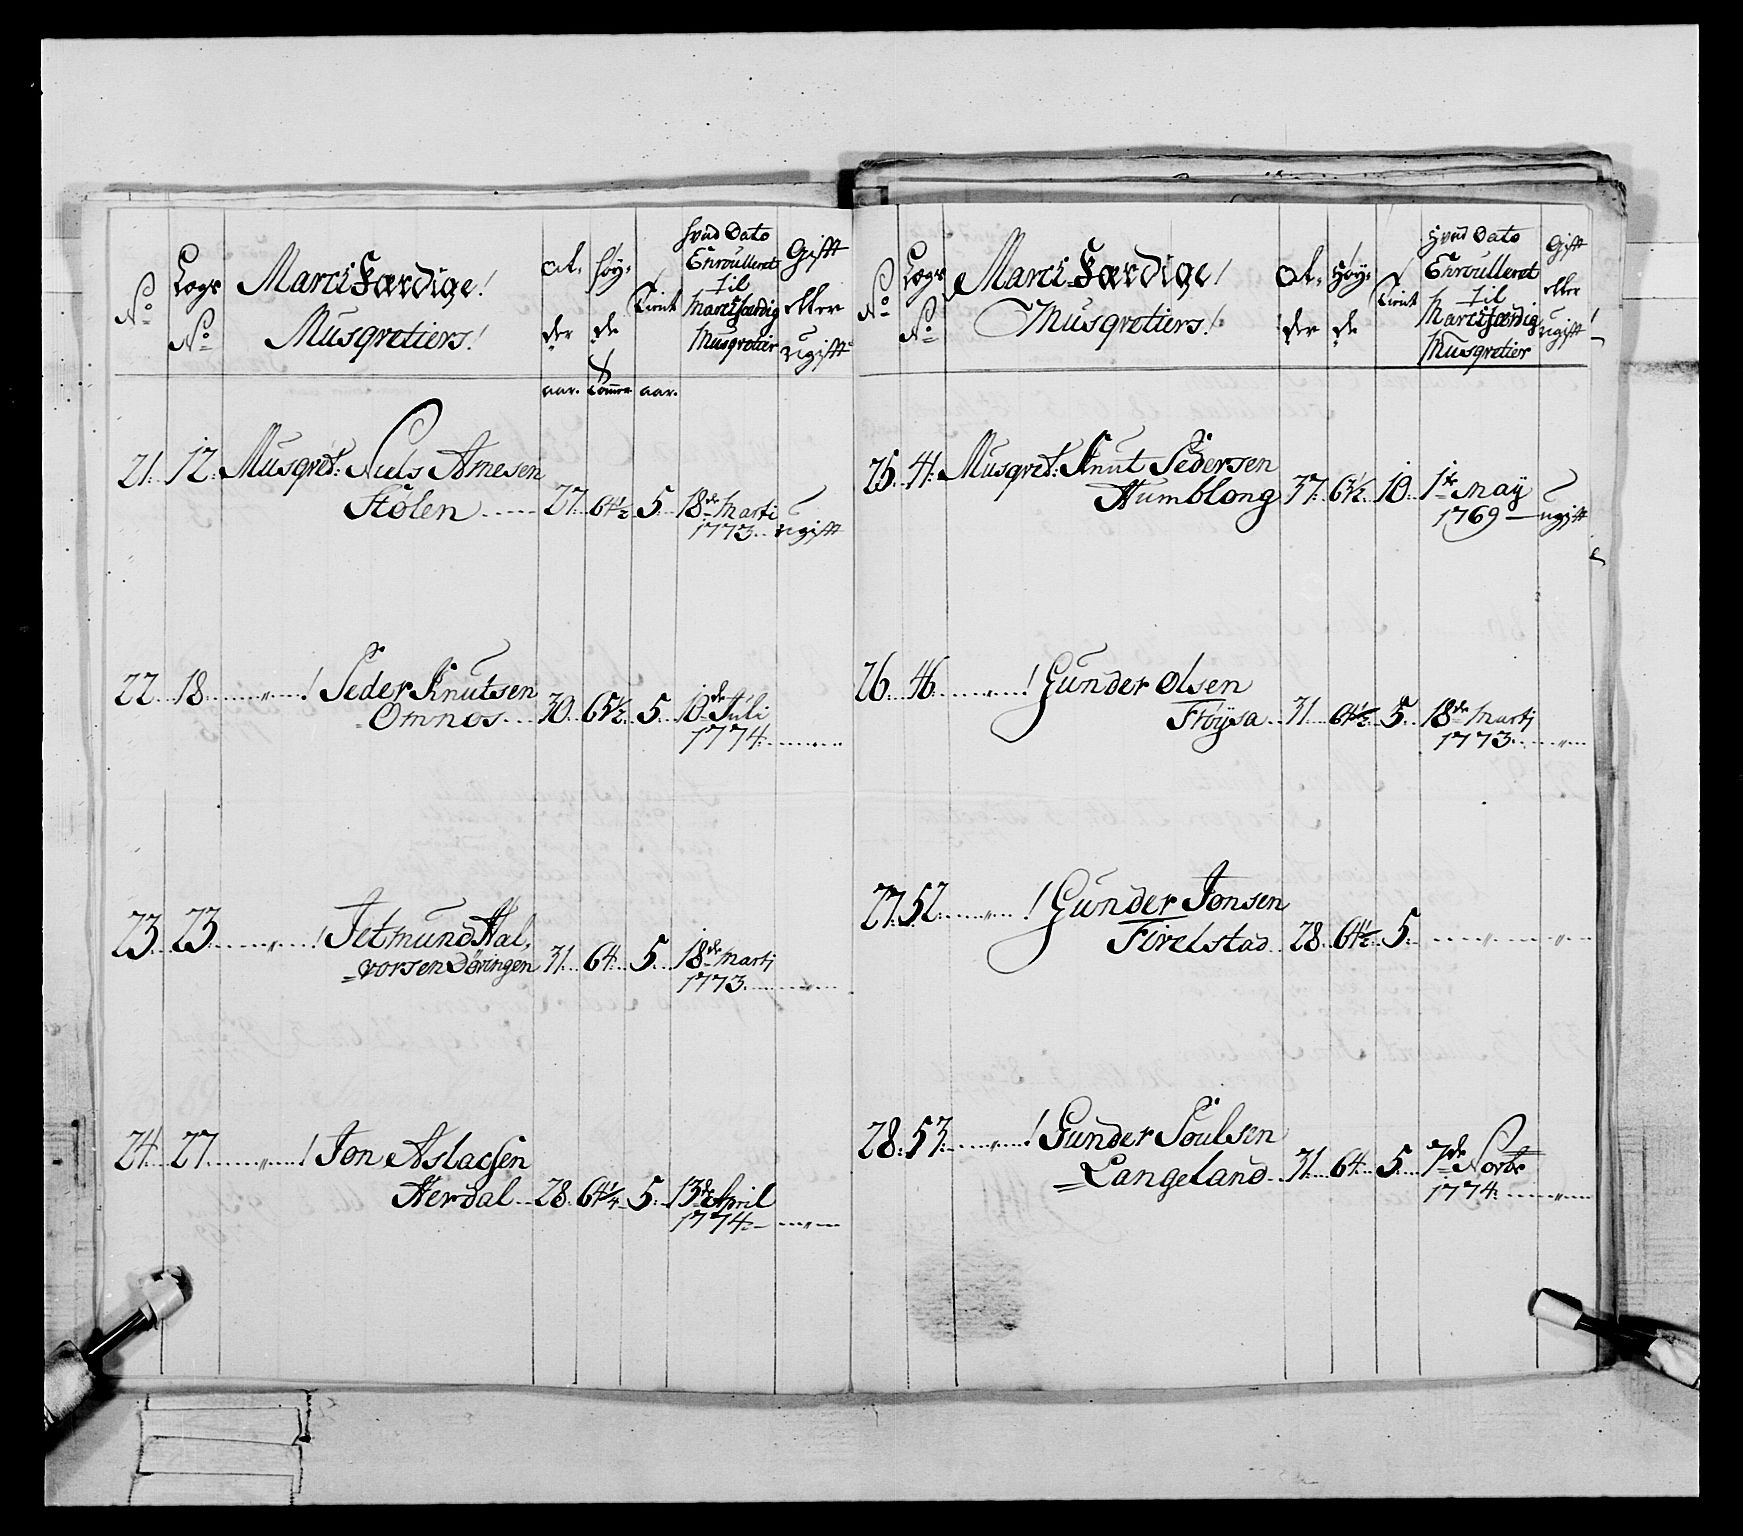 No
Lægs No
Marcsfærdige!
Musqvetiers!
al-
der
høy-
de
tient
hvad Dato
Enroulleret
til
Marcsfærdig
Musqvetier
Gift
eller
ugift
aar. Tomme aar.
21. 12. Musqvet: Niels Arnesen
Stølen 27. 64½ 5. 18de Martj
1773. ugift
22. 18. " ! Peder Knutsen
Omnos 30. 65½ 5. 10de Juli
1774. "
23. 23. " ! Tetmund Hal-
vorsen Døvingen 31. 64. 5. 18de Martj
1773. "
24. 27. " ! Jon Aslacsen
Herdal 28. 64¼ 5. 13de April
1774. "
No
Lægs No
Marcsfærdige!
Musqvetiers!
al-
der
Høy-
de
tient
hvad Dato
Enroulleret
til
Marcsfærdig
Musqvetier
Gift
eller
ugift!
25. 41. Musqvet: Knut Pedersen
Humblong 37. 65½ 10. 1te May
1769 ugift
26. 46. " ! Gunder Olsen
Frøysa 31. 64½ 5. 18de Martj
1773. "
27. 52. " ! Gunder Jonsen
Firelstad 28. 64½ 5. " "
28. 53. " ! Gunder Poulsen
Langeland 31. 64. 5. 7de Novbr
1774. "